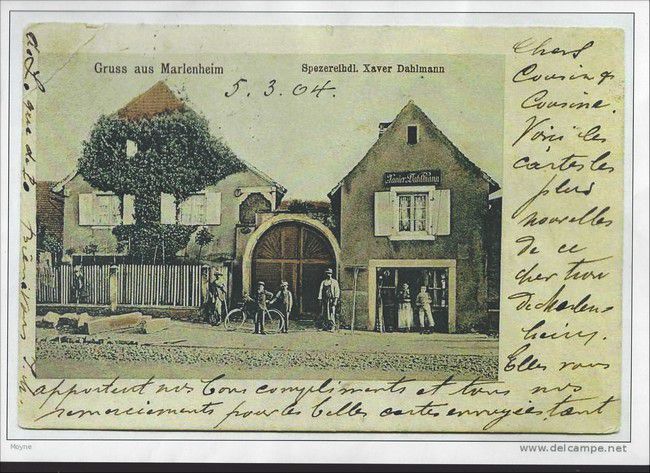 Gruss aus Marlenheim
Spezereihdl. Xaver Dahlmann
5. 3. 04.
Xavier Dahlmann
Chers
Cousin &
Cousine.
Voici les
cartes les
plus
nouvelles
de ce
cher trou
de Marlen
heim.
Elles vous
apportent nos bons compliments et tous nos
remerciements pour les belles cartes envoyées, tant
Moyne
www.delcampe.net